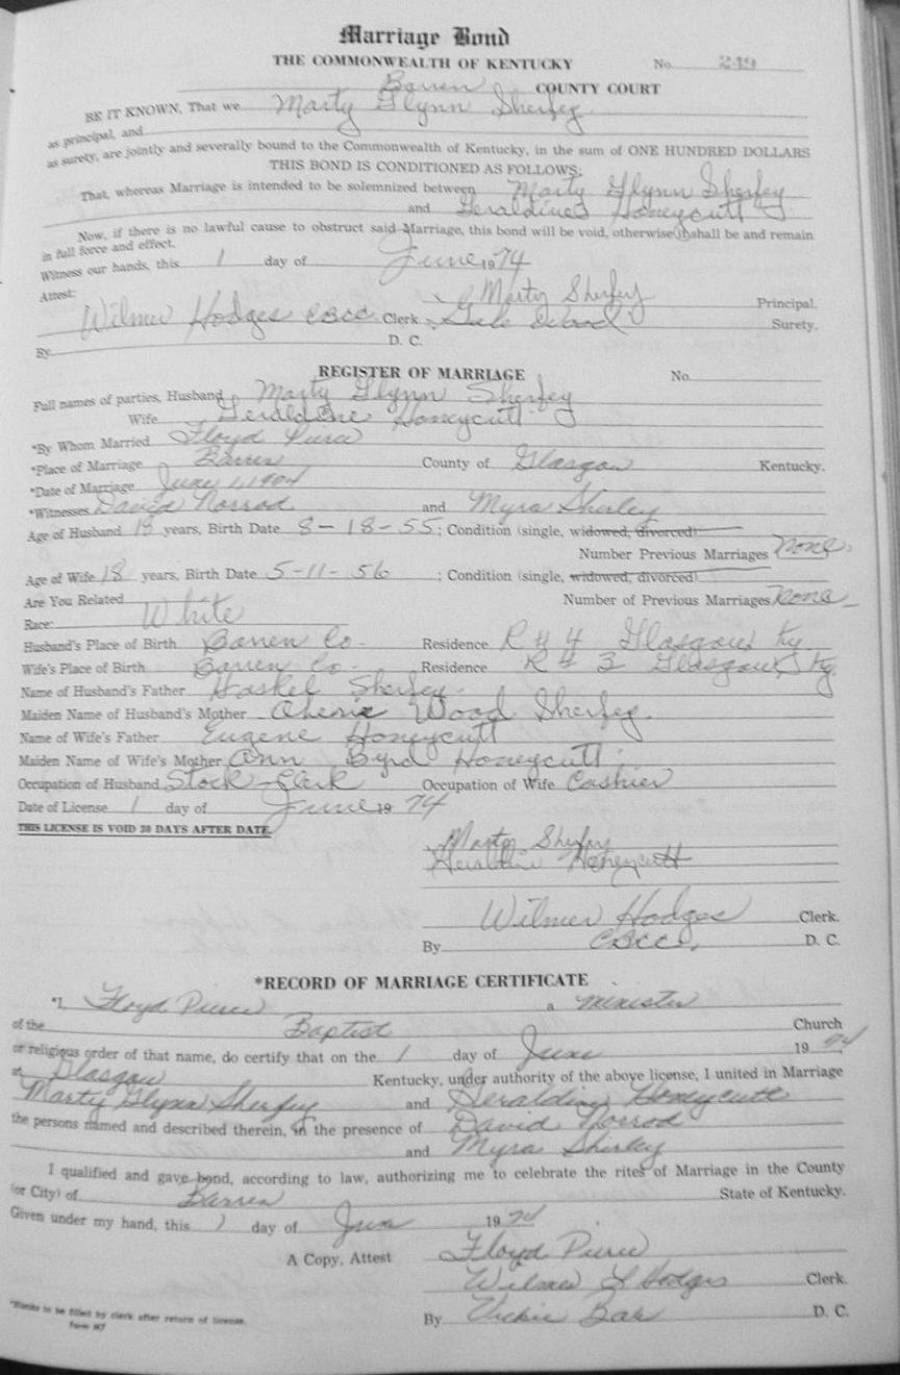 Marriage Bond
THE COMMONWEALTH OF KENTUCKY No. 249
Barren COUNTY COURT
BE IT KNOWN, That we Marty Glynn Sherfey
as principal, and
as surety, are jointly and severally bound to the Commonwealth of Kentucky, in the sum of ONE HUNDRED DOLLARS
THIS BOND IS CONDITIONED AS FOLLOWS:
That, whereas Marriage is intended to be solemnized between Marty Glynn Sherfey
and Geraldine Honeycutt
Now, if there is no lawful cause to obstruct said Marriage, this bond will be void, otherwise it shall be and remain
in full force and effect.
Witness our hands, this 1 day of June 1974
Attest: x Marty Sherfey Principal.
Wilmer Hodges CBCC Clerk Surety.
By D. C.
REGISTER OF MARRIAGE No.
Full names of parties, Husband Marty Glynn Sherfey
Wife Geraldine Honeycutt
*By Whom Married Floyd Pierce
*Place of Marriage Barren County of Glasgow Kentucky.
*Date of Marriage June 1, 1974
*Witnesses David Norrod and Myra Shirley
Age of Husband 18 years, Birth Date 8-18-55; Condition (single, widowed, divorced)
Number Previous Marriages None
Age of Wife 18 years, Birth Date 5-11-56; Condition (single, widowed, divorced)
Are You Related Number of Previous Marriages None
Race: White
Husband's Place of Birth Barren Co. Residence R # 4 Glasgow Ky
Wife's Place of Birth Barren Co. Residence R # 3 Glasgow Ky
Name of Husband's Father Haskel Sherfey
Maiden Name of Husband's Mother Wood Sherfey
Name of Wife's Father Eugene Honeycutt
Maiden Name of Wife's Mother Ann Byrd Honeycutt
Occupation of Husband Stock-Clerk Occupation of Wife Cashier
Date of License 1 day of June 1974
THIS LICENSE IS VOID 30 DAYS AFTER DATE.
Marty Sherfey
Geraldine Honeycutt
Wilmer Hodges Clerk.
By CBCC. D. C.
*RECORD OF MARRIAGE CERTIFICATE
*I, Floyd Pierce a minister
of the Baptist Church
or religious order of that name, do certify that on the 1 day of June 1974
at Glasgow Kentucky, under authority of the above license, I united in Marriage
Marty Glynn Sherfey and Geraldine Honeycutt
the persons named and described therein, in the presence of David Norrod
and Myra Shirley
I qualified and gave bond, according to law, authorizing me to celebrate the rites of Marriage in the County
(or City) of Barren State of Kentucky.
Given under my hand, this 1 day of Jun 1974
A Copy, Attest Floyd Pierce
Wilmer L Hodges Clerk.
By Vickie D. C.
*Blanks to be filled by clerk after return of license.
Form